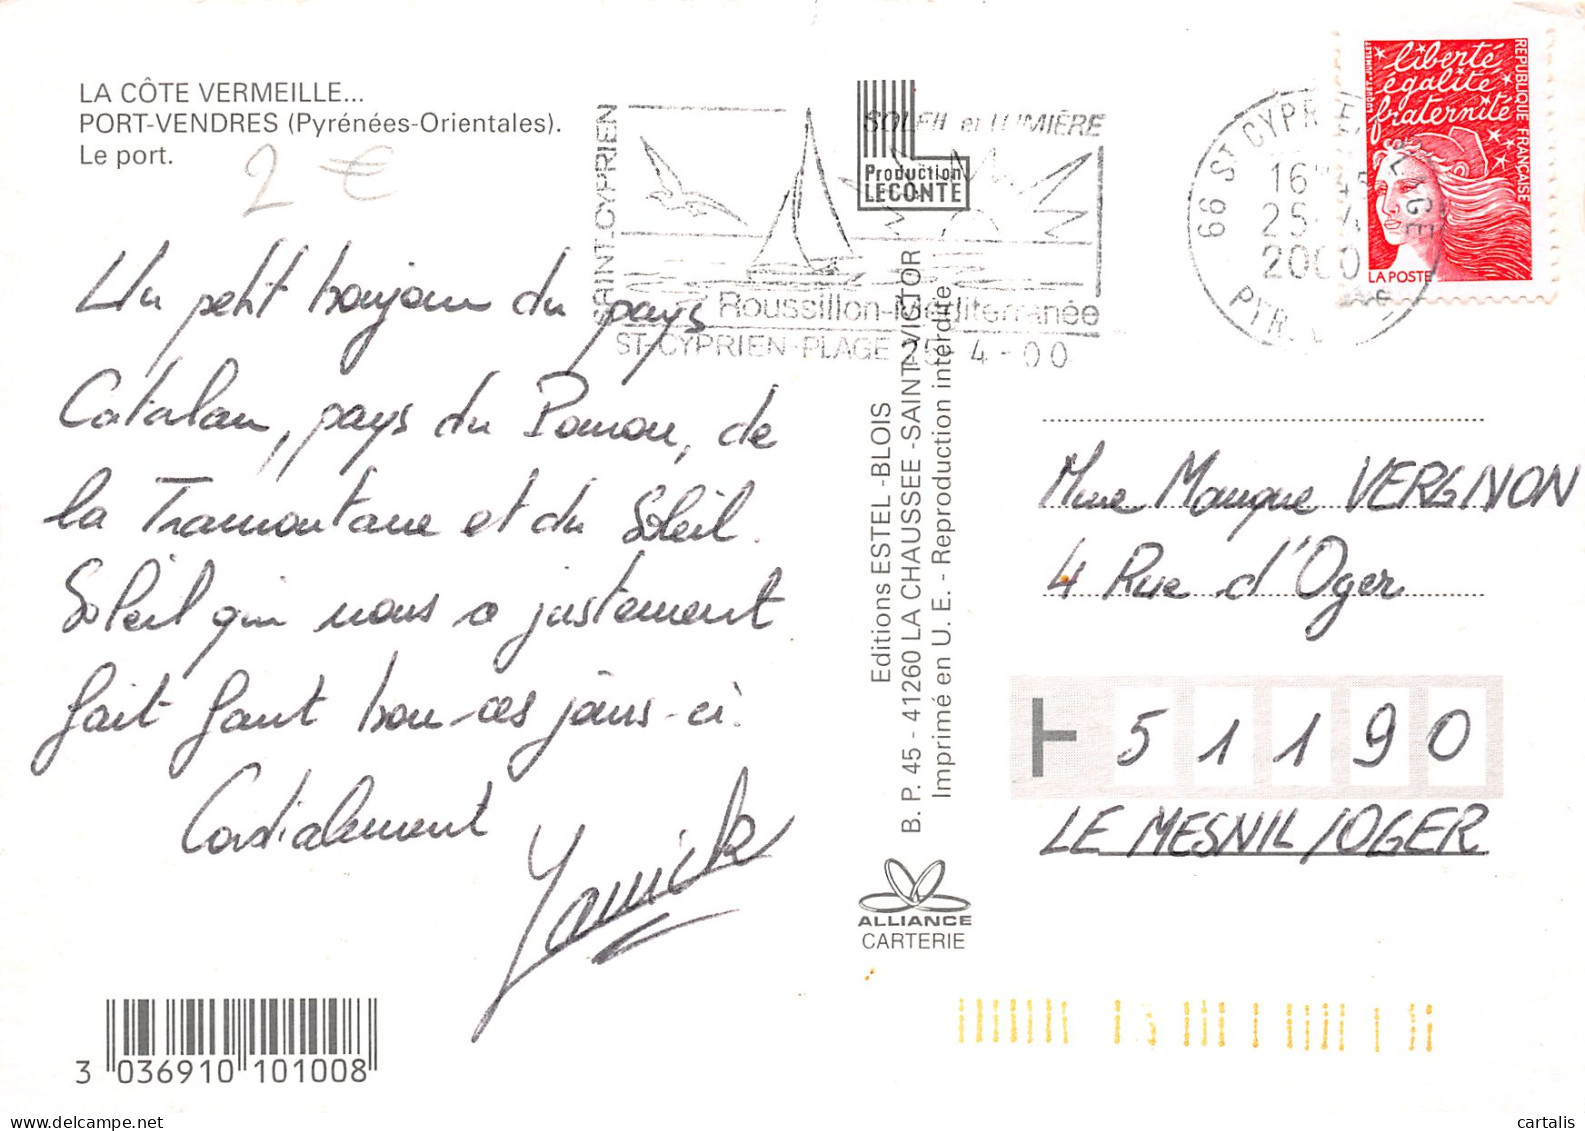 LA CÔTE VERMEILLE...
PORT-VENDRES (Pyrénées-Orientales).
Le port.
2 €
Un petit bonjour du pays
Catalan, pays du            , de
la Tramontane et du Soleil.
Soleil qui nous a justement
fait faut bon ces jours-ci.
Cordialement
Yannick
3 036910 101008
SAINT-CYPRIEN
SOLEIL et LUMIÈRE
Roussillon-Méditerranée
ST-CYPRIEN-PLAGE 25-4-00
Production
LECONTE
Editions ESTEL -BLOIS
B. P. 45 - 41260 LA CHAUSSEE -SAINT-VICTOR
Imprimé en U. E. - Reproduction interdite
ALLIANCE
CARTERIE
66 ST CYPRIEN PLAGE
25-4
2000
PYR. OR
liberté
égalité
fraternité
REPUBLIQUE FRANÇAISE
LA POSTE
LUQUET, JUMELET
Mme Monique VERGNON
4 Rue d'Oger
51190
LE MESNIL/OGER
cartalis